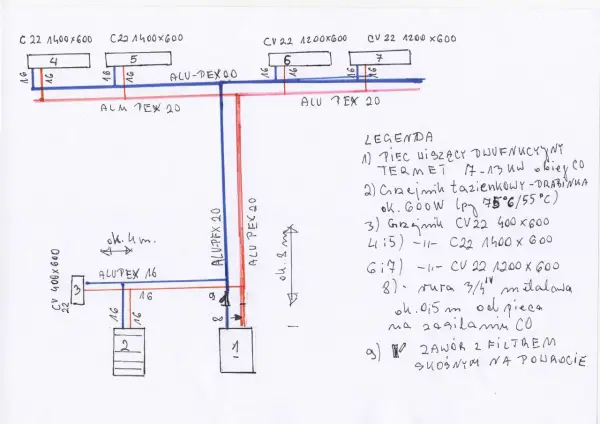 C 22 1400x600
C22 1400x600
CV 22 1200x600
CV 22 1200x600
4
5
6
7
16
16
16
16
16
16
16
16
ALU-PEX 20
ALU PEX 20
ALU PEX 20
LEGENDA
1) PIEC WISZĄCY DWUFUNKCYJNY
TERMET 7-13 KW obieg CO
2) Grzejnik łazienkowy-DRABINKA
ok. 600W (py 75°C/55°C)
3) Grzejnik CV22 400x600
4 i 5) -11- C22 1400 x 600
6 i 7) -11- CV 22 1200 x 600
8) - rura 3/4" metalowa
ok. 0,5 m od pieca
na zasilaniu CO
9) ZAWÓR Z FILTREM
SKOŚNYM NA POWROCIE
ALUPEX 20
ALU PEX 20
ok. 8 m
ok. 4 m.
ALUPEX 16
16
CV 400x600
22
3
16
16
9
8
2
1